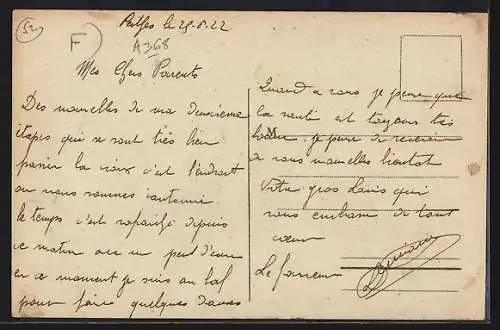 52
F
A368
le 29.8.22
Mes Chers Parents
Des nouvelles de ma deuxième
étapes qui se sont très bien
passer la croix c'est l'endroit
ou nous sommes
le temps c'est depuis
ce matin avec un peut d'eau
en ce moment je suis au
pour faire quelques
Quand a vous je pense que
la santé est toujours très
bonne. je pense de recevoir
de vos nouvelles bientot
Votre gros Louis qui
vous embrasse de tout
cœur
Le